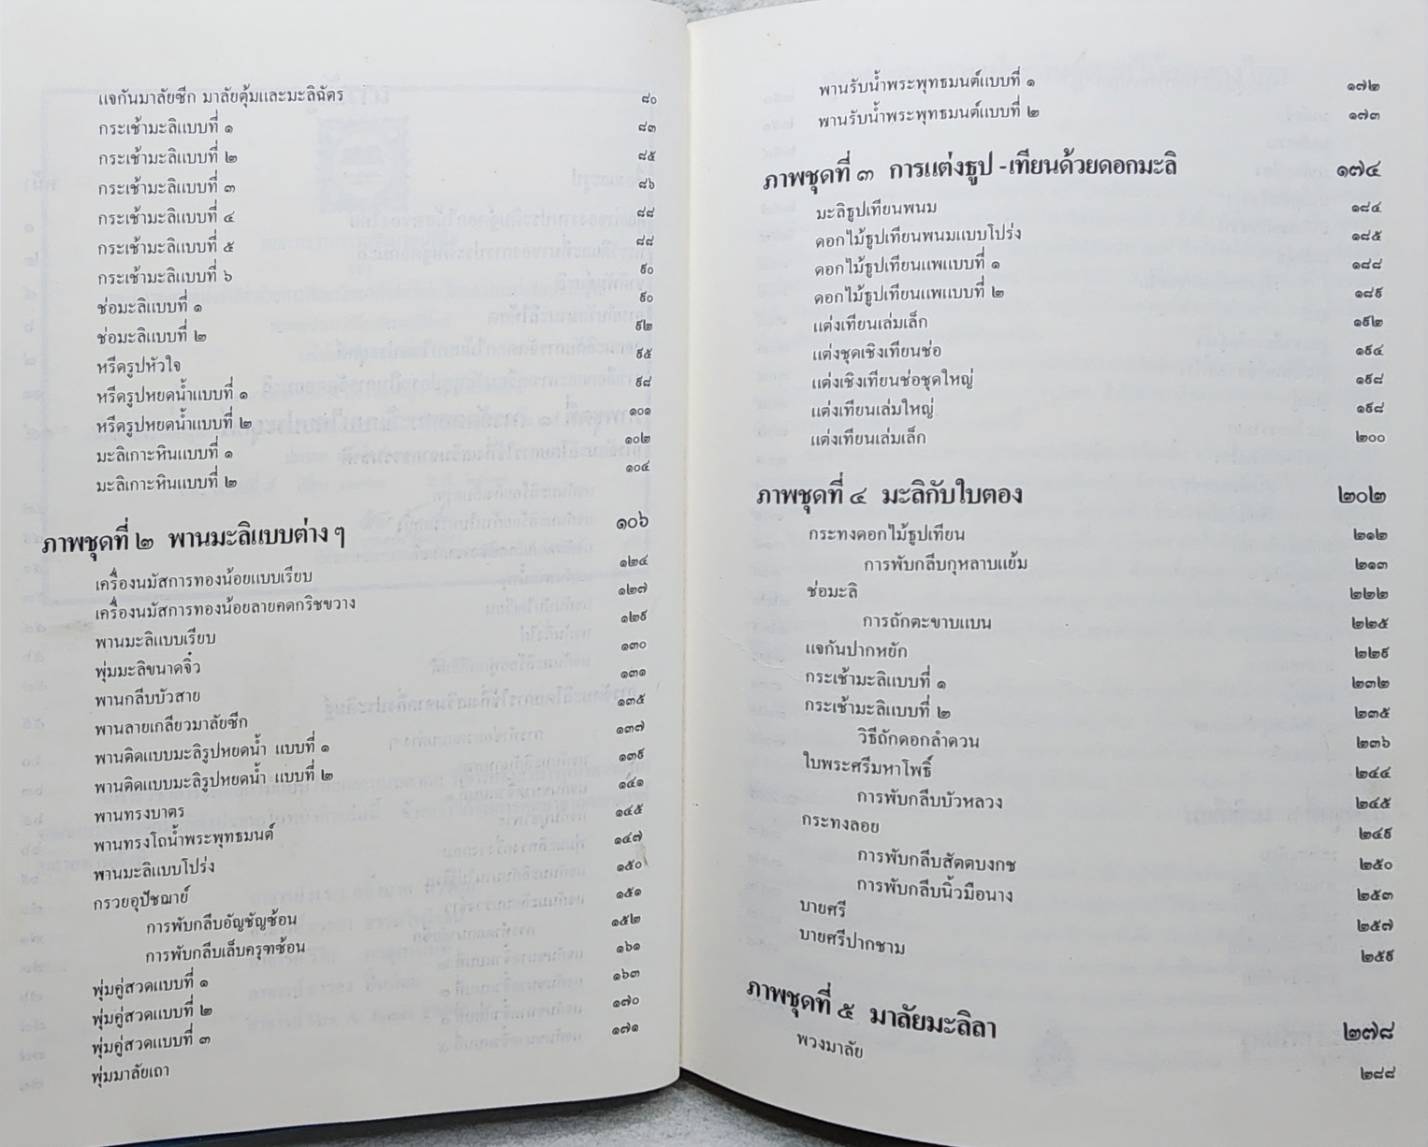 แจกันมาลัยซีก มาลัยตุ้มและมะลิฉัตร ๘๐
กระเช้ามะลิแบบที่ ๑ ๘๓
กระเช้ามะลิแบบที่ ๒ ๘๕
กระเช้ามะลิแบบที่ ๓ ๘๖
กระเช้ามะลิแบบที่ ๔ ๘๘
กระเช้ามะลิแบบที่ ๕ ๘๘
กระเช้ามะลิแบบที่ ๖ ๙๐
ช่อมะลิแบบที่ ๑ ๙๐
ช่อมะลิแบบที่ ๒ ๙๒
หรีดรูปหัวใจ ๙๕
หรีดรูปหยดน้ำแบบที่ ๑ ๙๘
หรีดรูปหยดน้ำแบบที่ ๒ ๑๐๑
มะลิเกาะหินแบบที่ ๑ ๑๐๒
มะลิเกาะหินแบบที่ ๒ ๑๐๔
ภาพชุดที่ ๒ พานมะลิแบบต่าง ๆ ๑๐๖
เครื่องนมัสการทองน้อยแบบเรียบ ๑๒๔
เครื่องนมัสการทองน้อยลายคดกริชขวาง ๑๒๗
พานมะลิแบบเรียบ ๑๒๙
พุ่มมะลิขนาดจิ๋ว ๑๓๐
พานกลีบบัวสาย ๑๓๑
พานลายเกลียวมาลัยซีก ๑๓๕
พานติดแบบมะลิรูปหยดน้ำ แบบที่ ๑ ๑๓๗
พานติดแบบมะลิรูปหยดน้ำ แบบที่ ๒ ๑๓๙
พานทรงบาตร ๑๔๑
พานทรงโถน้ำพระพุทธมนต์ ๑๔๕
พานมะลิแบบโปร่ง ๑๔๗
กรวยอุปัชฌาย์ ๑๕๐
การพับกลีบอัญชัญซ้อน ๑๕๑
การพับกลีบเล็บครุฑซ้อน ๑๕๒
พุ่มคู่สวดแบบที่ ๑ ๑๖๑
พุ่มคู่สวดแบบที่ ๒ ๑๖๓
พุ่มคู่สวดแบบที่ ๓ ๑๗๐
พุ่มมาลัยเถา ๑๗๑
พานรับน้ำพระพุทธมนต์แบบที่ ๑ ๑๗๒
พานรับน้ำพระพุทธมนต์แบบที่ ๒ ๑๗๓
ภาพชุดที่ ๓ การแต่งธูป -เทียนด้วยดอกมะลิ ๑๗๔
มะลิธูปเทียนพนม ๑๘๔
ดอกไม้ธูปเทียนพนมแบบโปร่ง ๑๘๕
ดอกไม้ธูปเทียนแพแบบที่ ๑ ๑๘๘
ดอกไม้ธูปเทียนแพแบบที่ ๒ ๑๘๙
แต่งเทียนเล่มเล็ก ๑๙๒
แต่งชุดเชิงเทียนช่อ ๑๙๔
แต่งเชิงเทียนช่อชุดใหญ่ ๑๙๘
แต่งเทียนเล่มใหญ่ ๑๙๘
แต่งเทียนเล่มเล็ก ๒๐๐
ภาพชุดที่ ๔ มะลิกับใบตอง ๒๐๒
กระทงดอกไม้ธูปเทียน ๒๑๒
การพับกลีบกุหลาบแย้ม ๒๑๓
ช่อมะลิ ๒๒๒
การถักตะขาบแบน ๒๒๕
แจกันปากหยัก ๒๒๙
กระเช้ามะลิแบบที่ ๑ ๒๓๒
กระเช้ามะลิแบบที่ ๒ ๒๓๕
วิธีถักดอกลำดวน ๒๓๖
ใบพระศรีมหาโพธิ์ ๒๔๔
การพับกลีบบัวหลวง ๒๔๕
กระทงลอย ๒๔๙
การพับกลีบสัตตบงกช ๒๕๐
การพับกลีบนิ้วมือนาง ๒๕๓
บายศรี ๒๕๗
บายศรีปากชาม ๒๕๙
ภาพชุดที่ ๕ มาลัยมะลิลา ๒๗๘
พวงมาลัย ๒๘๘